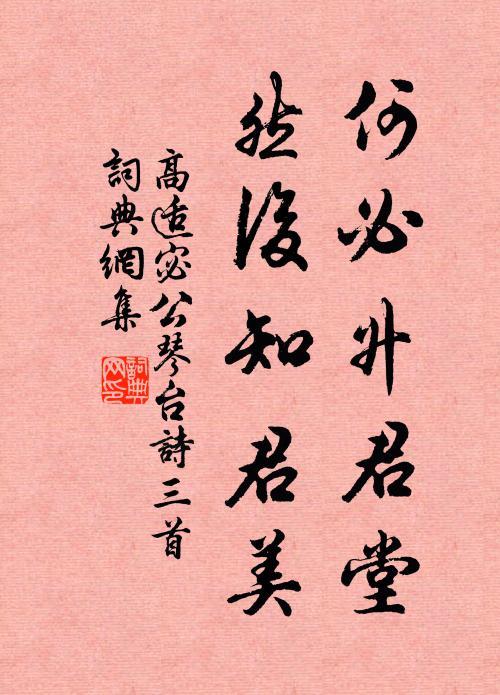 何必升君堂
然後知君美
高适宓公琴台詩三首
詞典網集
詞典
网印